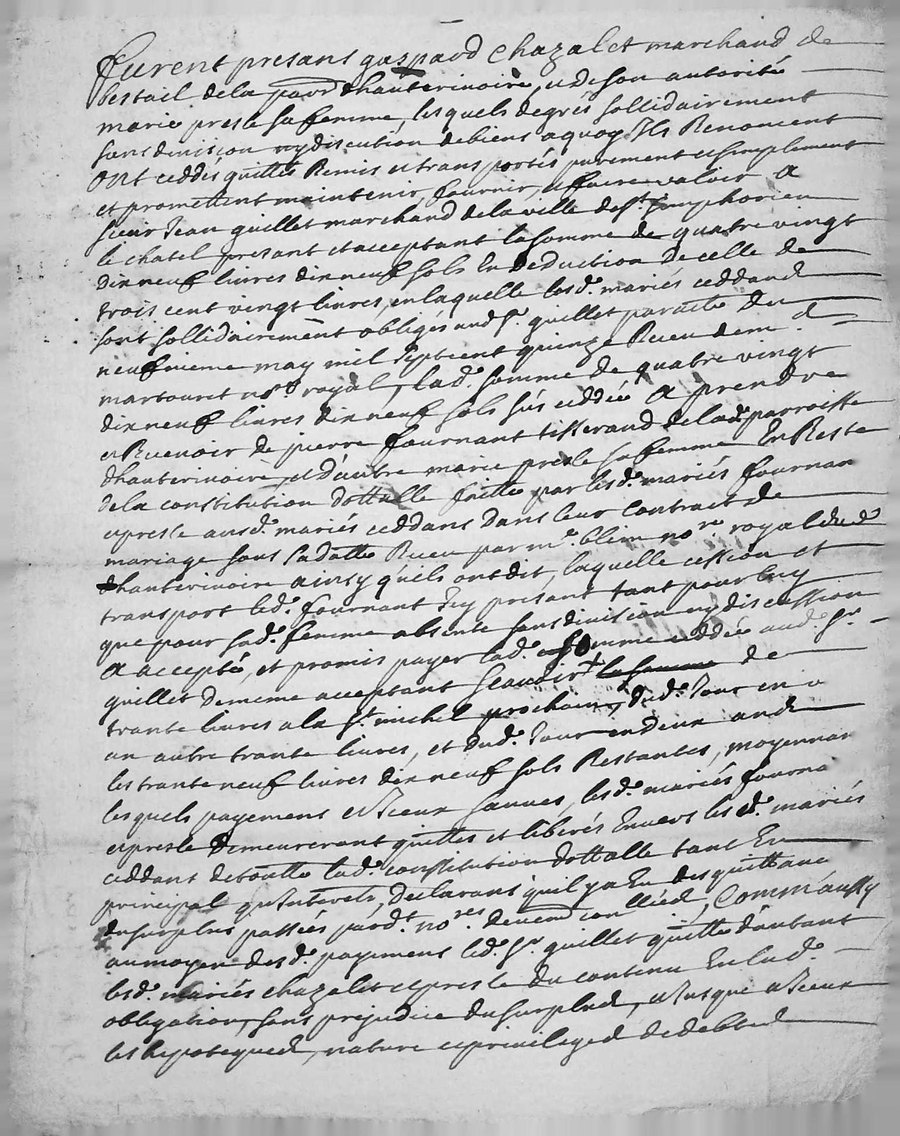 furent presans gaspard chazalet marchand de
bestail de la parr dhauterivoire, et de son autorité
marie presle sa femme, les quels de grés sollidairement
sans division ny discution de biens a quoy Ils Renoncent
ont ceddés quittés Remis et transportés purement et simplement
et promettent maintenir fournir, et faire valoir A
sieur Jean guillet marchand de la ville de st simphorien
le chatel presant et acceptant la somme de quatre vingt
dix neuf livres dix neuf sols En deduction de celle de
trois cent vingt livres, en laquelle lesd. mariés ceddand
sont sollidairement obligés aud sr. guillet par acte du
neufvieme may mil sept cent quinze Receu dem. d
martouret nore royal, lad. somme de quatre vingt
dix neuf livres dix neuf sols sus ceddée A prendre
et Recevoir de pierre fournant tisserand de lad. parroisse
dhauterivoire, et d'autre marie presle sa femme En Reste
de la constitution dottalle faitte par lesd. mariés fournan
et presle ausd. mariés ceddans dans leur contrait de
mariage sous sa datte Receu par me. blein nore royal dud
dhauterivoire ainsy quils ont dit, laquelle cession et
transport led. fournant Icy presant tant pour luy
que pour sad. femme absente sans division ny discussion
A accepté, et promis payer lad. somme ceddée aud. sr.
guillet de meme acceptant scavoir la somme de
trante livres a la st. michel prochain, dud. Jour en
un autre trante livres, et dud. Jour en deux ands
les trante neuf livres dix neuf sols Restantes, moyennan
les quels payement et Iceux sauves, lesd. mariés fourna
et presle demeureront quittes et liberés Envers les d. mariés
ceddant de toutte lad. constitution dottalle tant En
principal qu'Interets, declarans quil y a Eu des quittanc
du surplus passées pardt. nores. dem end con llied, Comm'aussy
au moyen desd. payement led. sr. guillet quitte d'autant
lesd. mariés chazalet et presle du contenu En lad.
obligation, sans prejudice du surplud, et Jusque a Iceux
les hepotequed, nature et privileged de debted